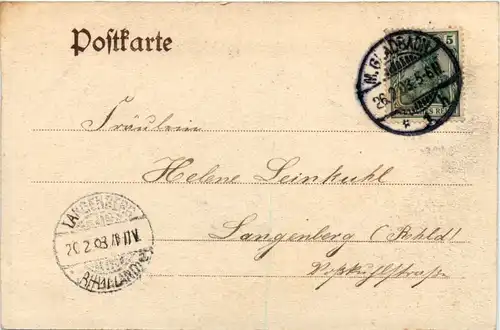 Postkarte
5
M. GLADBACH
26.2.03. 5-6 N.
Fräulein
Helene Leinkuhl
Langenberg (Rhld)
Voßkuhlstraße
LANGENBERG
26.2.03
(RHEINLAND)